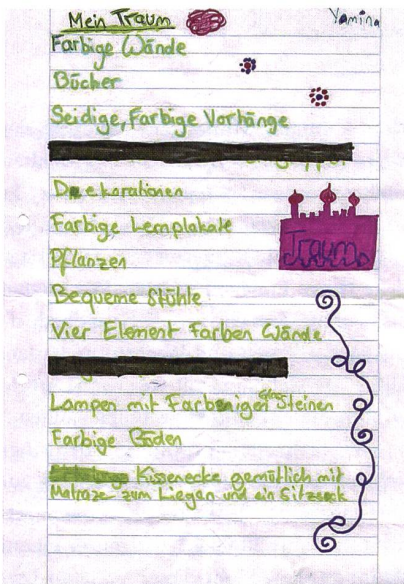 Mein Traum
Yamina
Farbige Wände
Bücher
Seidige, Farbige Vorhänge
Dekorationen
Farbige Lernplakate
Traum
Pflanzen
Bequeme Stühle
Vier Element Farben Wände
Lampen mit Farbenigen Steinen
Farbige Böden
Kissenecke gemütlich mit
Matraze zum Liegen und ein Sitzseck